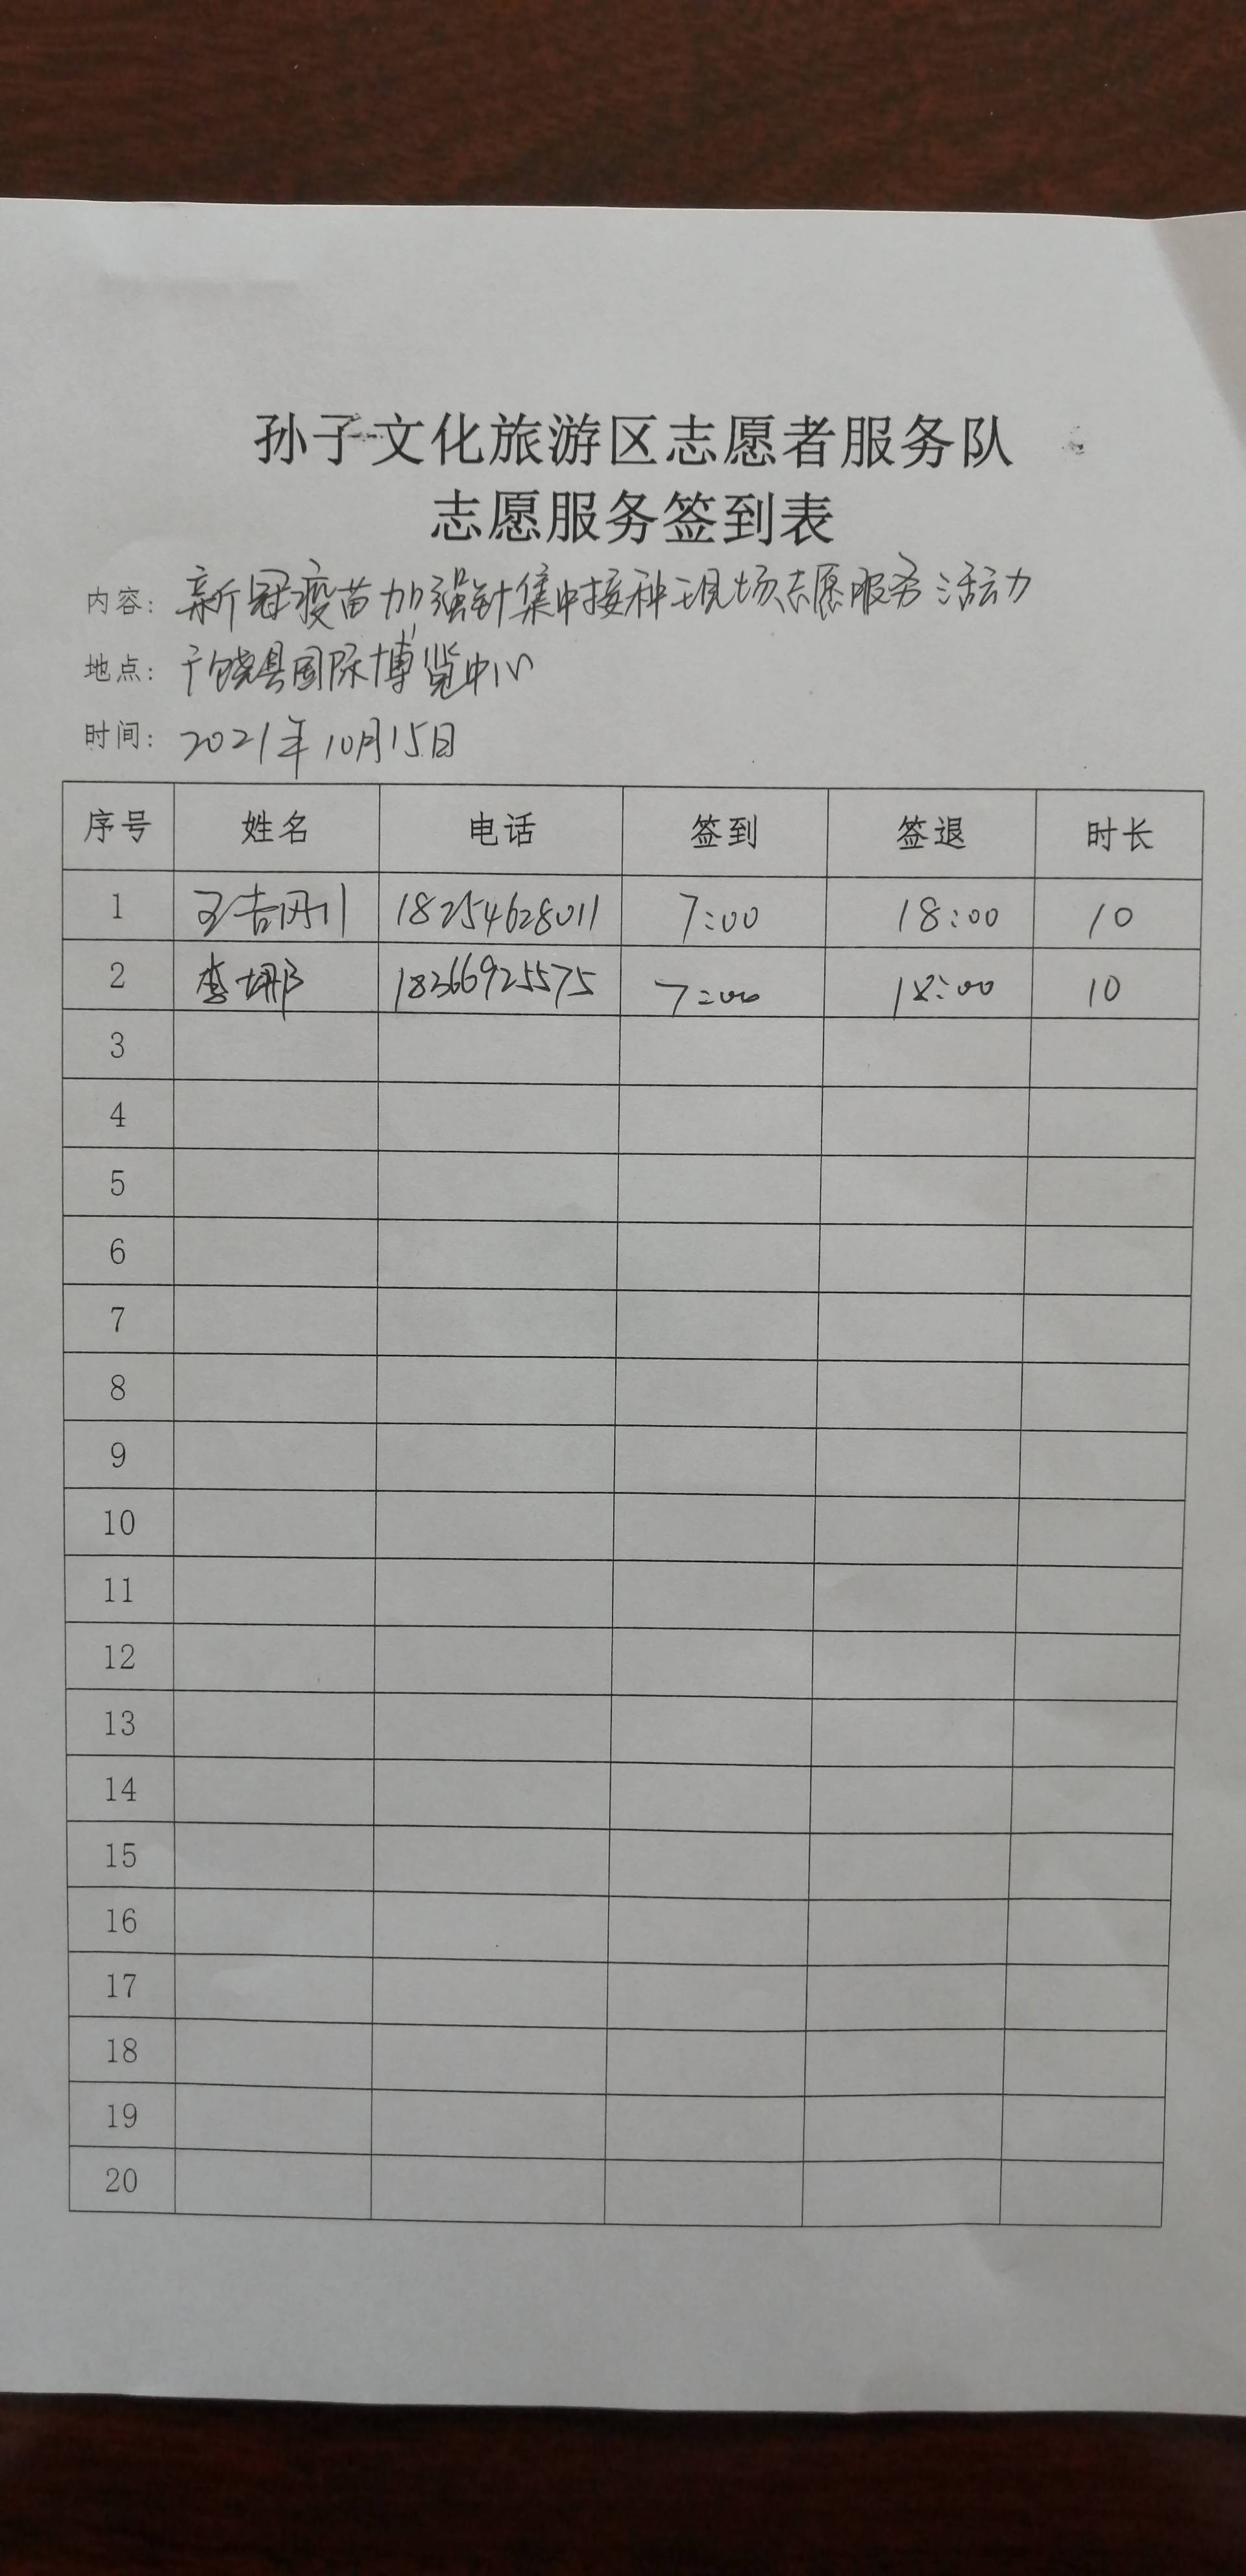 孙子文化旅游区志愿者服务队
志愿服务签到表
内容：新冠疫苗加强针集中接种现场志愿服务活动
地点：广饶县国际博览中心
时间：2021年10月15日
序号 姓名 电话 签到 签退 时长
1 18254628011 7:00 18:00 10
2 李娜 18366925575 7:00 18:00 10
3
4
5
6
7
8
9
10
11
12
13
14
15
16
17
18
19
20